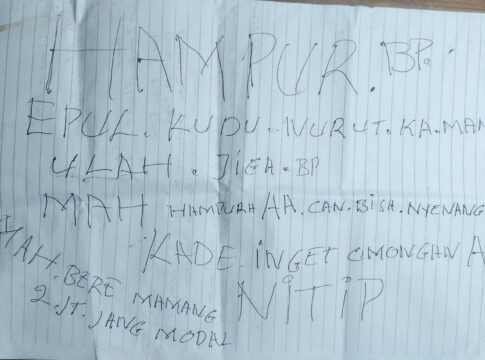 HAMPUR. BP.
EPUL. KUDU. NURUT. KA. MAM
ULAH. JIGA. BP
MAH HAMPURA AA. CAN. BISA. NYENANG
KADE. INGET OMONGAN A
MAH. BERE MAMANG NITIP
2. JT. JANG MODAL